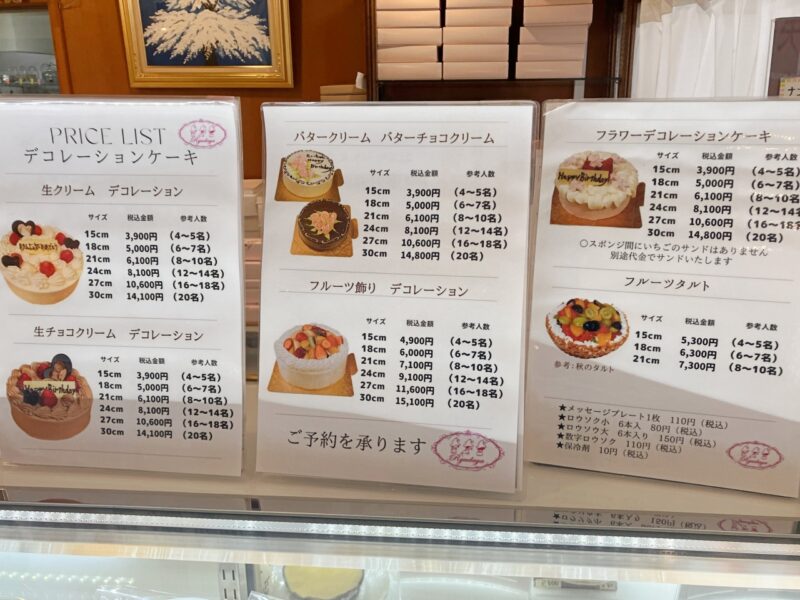 PRICE LIST
デコレーションケーキ
生クリーム デコレーション
サイズ 税込金額 参考人数
15cm 3,900円 (4〜5名)
18cm 5,000円 (6〜7名)
21cm 6,100円 (8〜10名)
24cm 8,100円 (12〜14名)
27cm 10,600円 (16〜18名)
30cm 14,100円 (20名)
生チョコクリーム デコレーション
サイズ 税込金額 参考人数
15cm 3,900円 (4〜5名)
18cm 5,000円 (6〜7名)
21cm 6,100円 (8〜10名)
24cm 8,100円 (12〜14名)
27cm 10,600円 (16〜18名)
30cm 14,100円 (20名)
バタークリーム バターチョコクリーム
サイズ 税込金額 参考人数
15cm 3,900円 (4〜5名)
18cm 5,000円 (6〜7名)
21cm 6,100円 (8〜10名)
24cm 8,100円 (12〜14名)
27cm 10,600円 (16〜18名)
30cm 14,800円 (20名)
フルーツ飾り デコレーション
サイズ 税込金額 参考人数
15cm 4,900円 (4〜5名)
18cm 6,000円 (6〜7名)
21cm 7,100円 (8〜10名)
24cm 9,100円 (12〜14名)
27cm 11,600円 (16〜18名)
30cm 15,100円 (20名)
ご予約を承ります
フラワーデコレーションケーキ
サイズ 税込金額 参考人数
15cm 3,900円 (4〜5名)
18cm 5,000円 (6〜7名)
21cm 6,100円 (8〜10名)
24cm 8,100円 (12〜14名)
27cm 10,600円 (16〜18名)
30cm 14,800円 (20名)
○スポンジ間にいちごのサンドはありません
別途代金でサンドいたします
フルーツタルト
サイズ 税込金額 参考人数
15cm 5,300円 (4〜5名)
18cm 6,300円 (6〜7名)
21cm 7,300円 (8〜10名)
参考:秋のタルト
★メッセージプレート1枚 110円(税込)
★ロウソク小 6本入 80円(税込)
★ロウソウ大 6本入り 150円(税込)
★数字ロウソク 110円(税込)
★保冷剤 10円(税込)